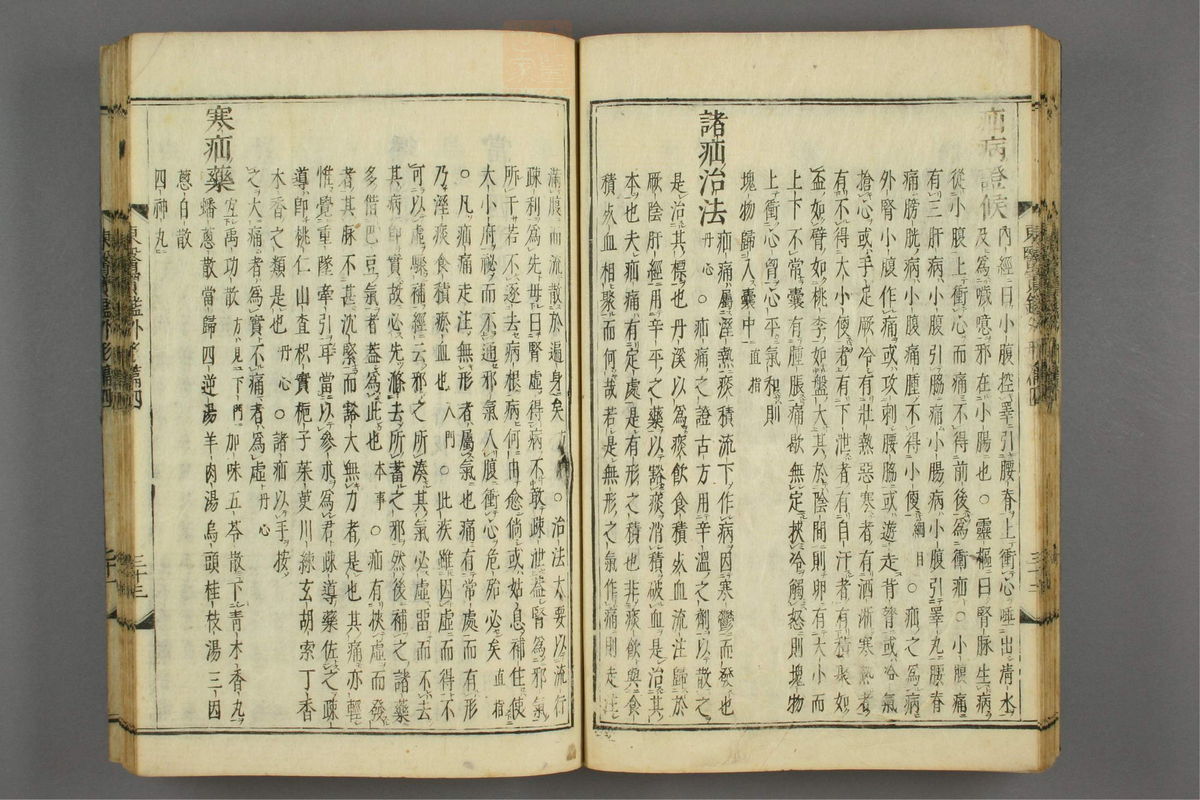 疝病證候
內經曰小腹控睪引腰脊上衝心唾出淸水
及爲噦噫邪在小腸也○靈樞曰腎脉生病
從小腹上衝心而痛不得前後爲衝疝○小腹痛
有三肝病小腹引脇痛小腸病小腹引睪丸腰脊
痛膀胱病小腹痛腫不得小便綱目○疝之爲病
外腎小腹作痛或攻刺腰脇或遊走背膂或冷氣
搶心或手足厥冷有壯熱惡寒者有洒淅寒熱者
有不得大小便者有下泄者有自汗者有積聚如
盃如臂如桃李如盤大其於陰間則卵有大小而
上下不常囊有腫脹痛歇無定挾冷觸怒則塊物
上衝心胷心平氣和則
塊物歸入囊中直指
諸疝治法
疝痛屬溼熱痰積流下作病因寒鬱而發也
丹心○疝痛之證古方用辛溫之劑以散之
是治其標也丹溪以爲痰飮食積死血流注歸於
厥陰肝經用辛平之藥以豁痰消積破血是治其
本也夫疝痛有定處是有形之積也非痰飮與食
積死血相聚而何哉若是無形之氣作痛則走注
滿腹而流散於遍身矣方○治法大要以流行
疎利爲先毋曰腎虛得病不敢疎泄盖腎爲邪氣
所干若不逐去病根病何由愈倘或姑息補住使
大小府祕而不通邪氣入腹衝心危殆必矣直指
○凡疝痛走注無形者屬氣也痛有常處而有形
乃溼痰食積瘀血也入門○此疾雖因虛而得不
可以虛驟補經云邪之所湊其氣必虛留而不去
其病卽實故必先滌去所蓄之邪然後補之諸藥
多借巴豆氣者盖爲此也本事○疝有挾虛而發
者其脉不甚沈緊而豁大無力者是也其痛亦輕
惟覺重墜牽引耳當以參朮爲君疎導藥佐之疎
導卽桃仁山査枳實梔子茱萸川練玄胡索丁香
木香之類是也丹心○諸疝以手按
之大痛者爲實不痛者爲虛丹心
寒疝藥
宜禹功散方見下門加味五苓散下靑木香丸
蟠葱散當歸四逆湯羊肉湯烏頭桂枝湯三因
葱白散
四神丸
三十三